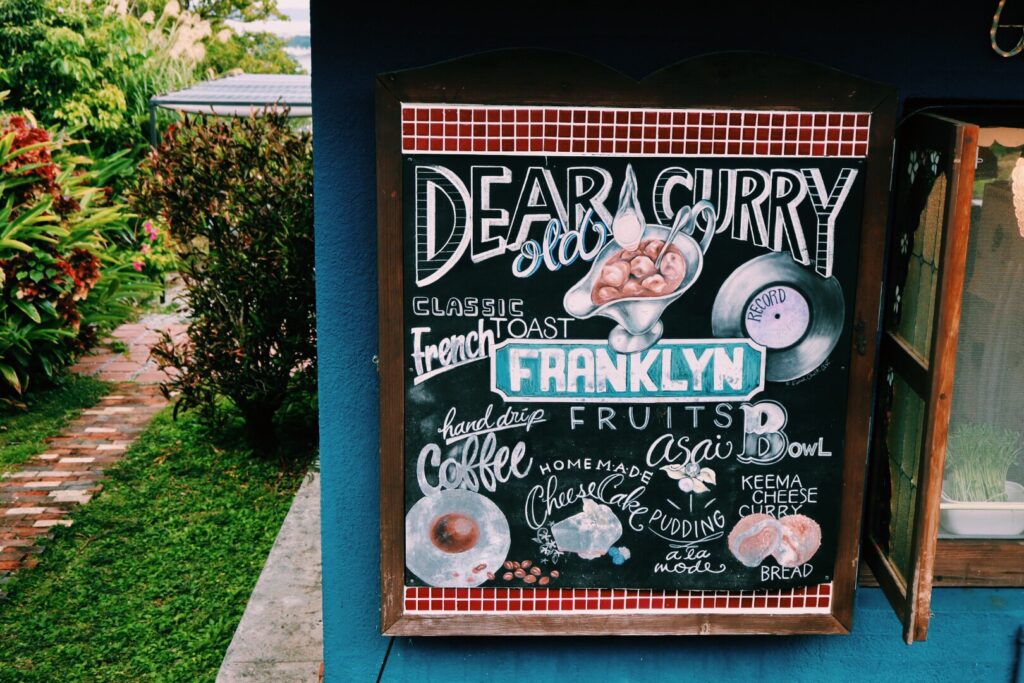 DEAR old CURRY
RECORD
CLASSIC
French TOAST
FRANKLYN
FRUITS
hand drip
Coffee
asai Bowl
HOMEMADE
CheeseCake
PUDDING
a la
mode
KEEMA
CHEESE
CURRY
BREAD